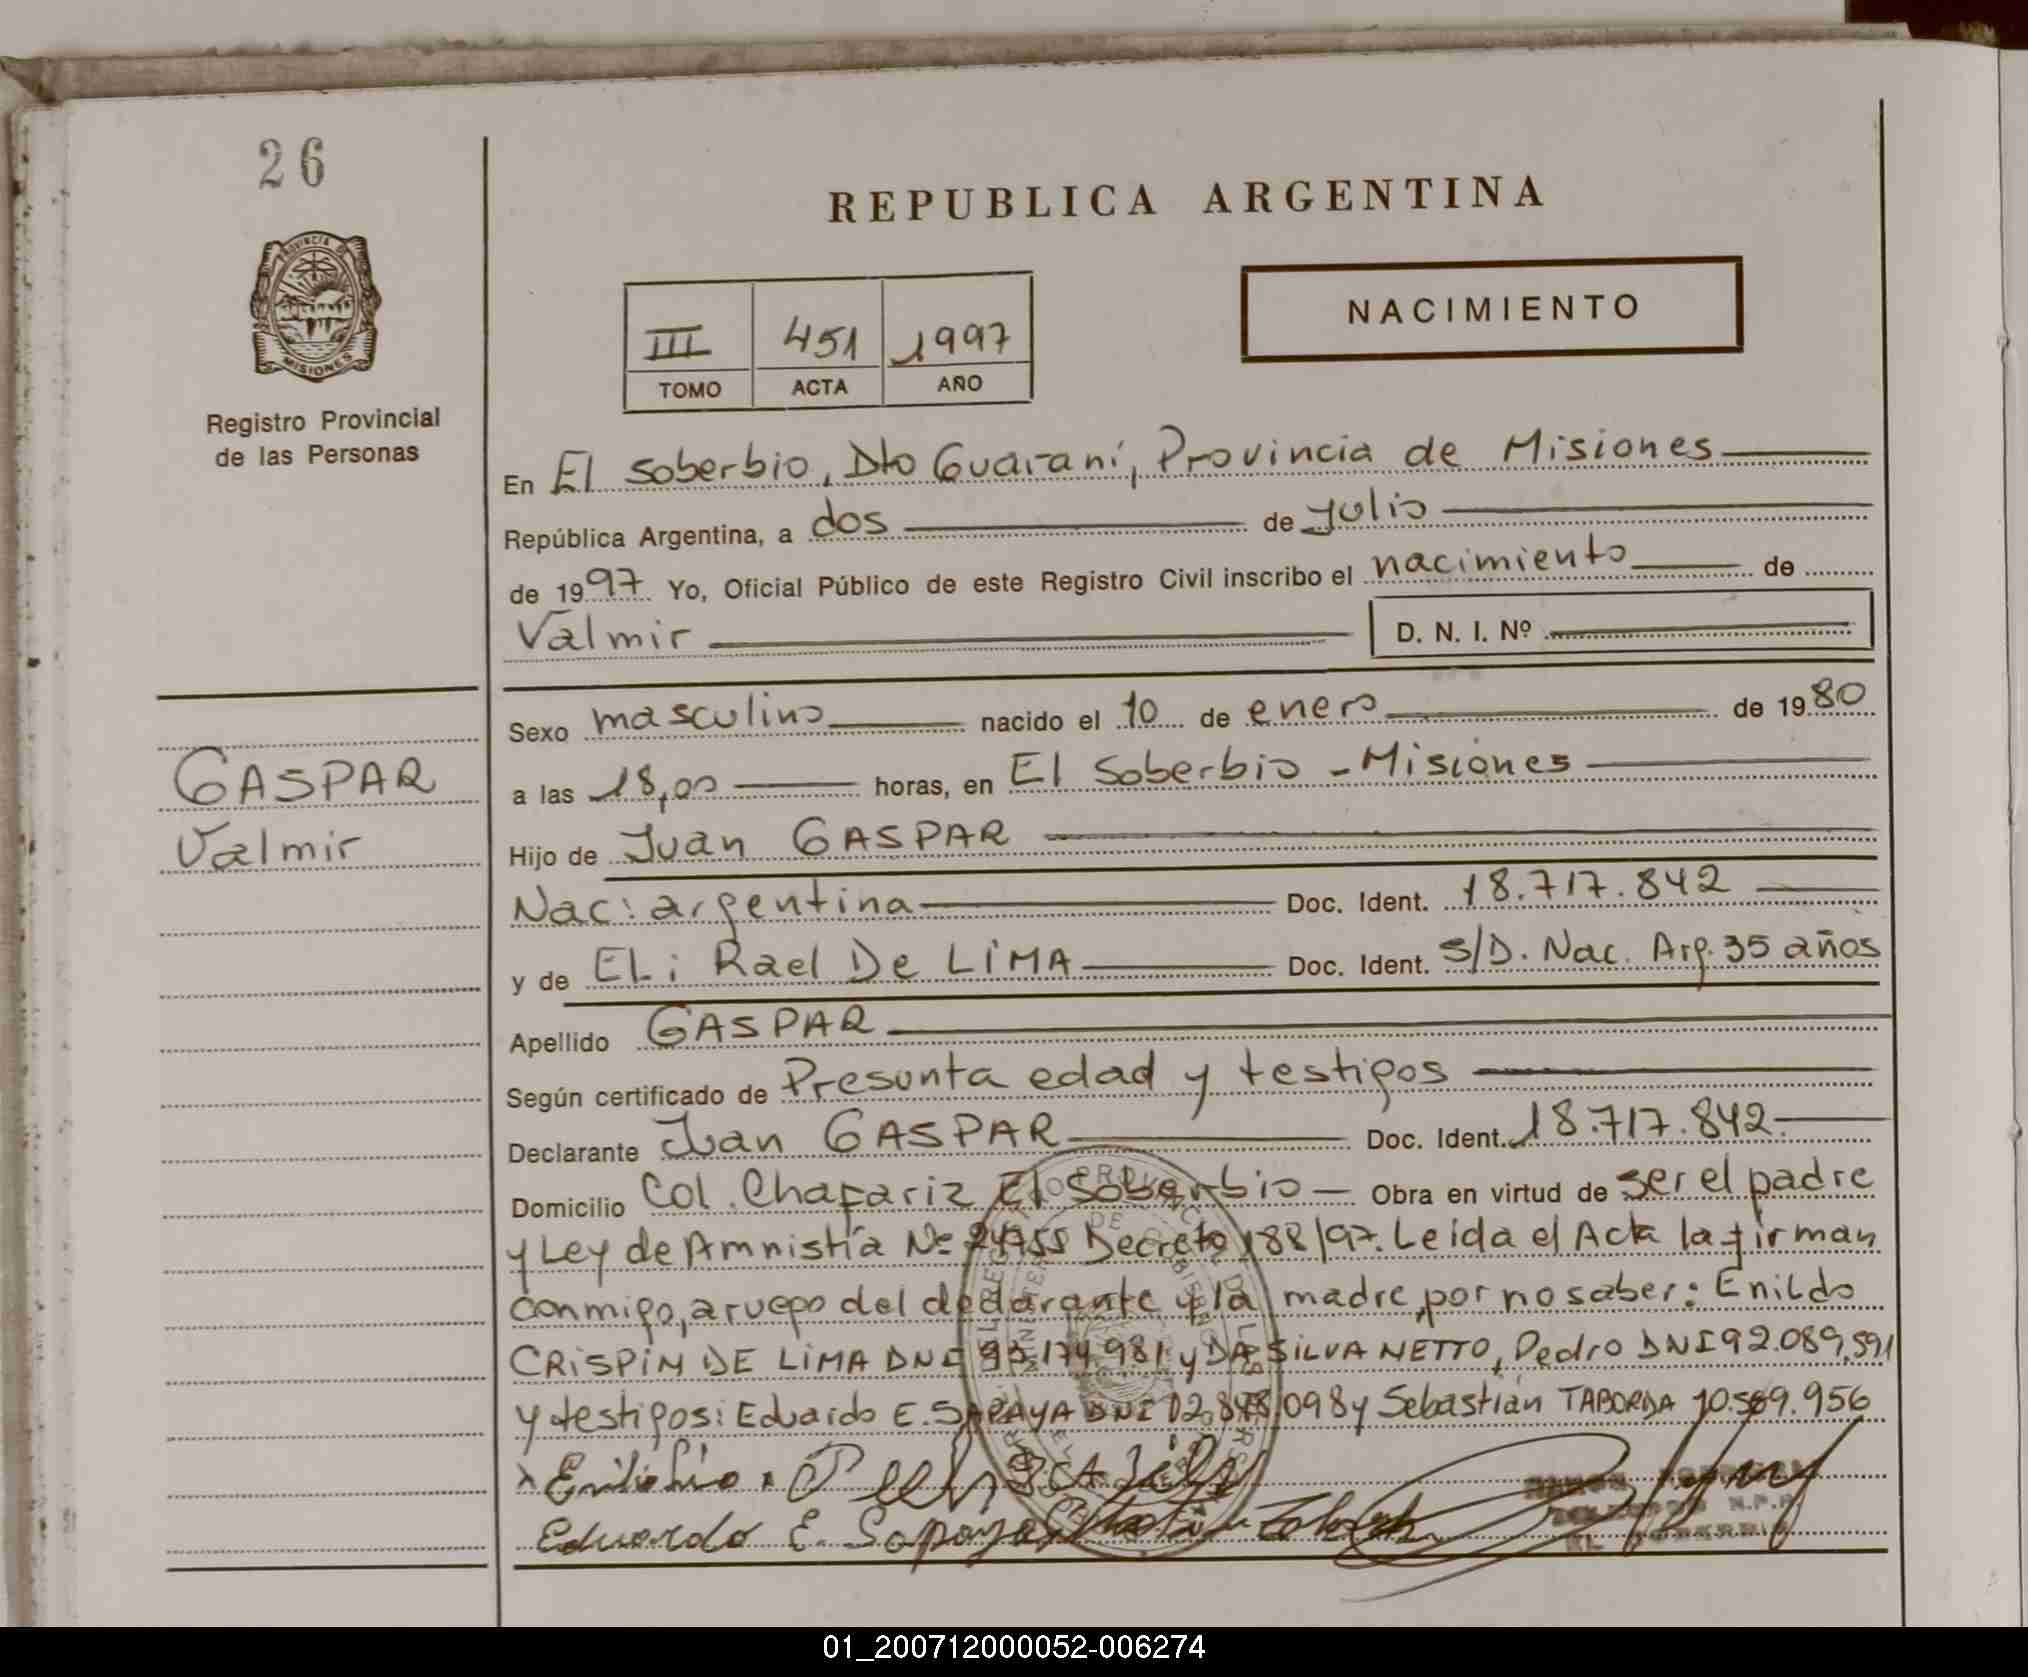 26
REPUBLICA ARGENTINA
PROVINCIA DE
MISIONES
Registro Provincial
de las Personas
III 451 1997
TOMO ACTA AÑO
NACIMIENTO
En El Soberbio, Dto Guaraní, Provincia de Misiones
República Argentina, a dos de Julio
de 1997 Yo, Oficial Público de este Registro Civil inscribo el nacimiento de
Valmir D. N. I. Nº
Sexo masculino nacido el 10 de enero de 1980
GASPAR
Valmir
a las 18,00 horas, en El Soberbio - Misiones
Hijo de Juan GASPAR
Nac: argentina Doc. Ident. 18.717.842
y de ELi Rael De LiMA Doc. Ident. S/D. Nac. Arg. 35 años
Apellido GASPAR
Según certificado de Presunta edad y testigos
Declarante Juan GASPAR Doc. Ident. 18.717.842.
Domicilio Col. Chafariz El Soberbio Obra en virtud de ser el padre
y Ley de Amnistía Nº 24755 Decreto 188/97. Leída el Acta la firman
conmigo, a ruego del declarante y la madre, por no saber: Enildo
CRiSPiN DE LiMA DNI y DA SiLVA NETTO, Pedro DNI 92.089.591
y testigos: Eduardo E. SAPAYA DNI y Sebastián TABORDA 10.569.956
Eduardo E. Sapaya
EL SOBERBIO
01_200712000052-006274